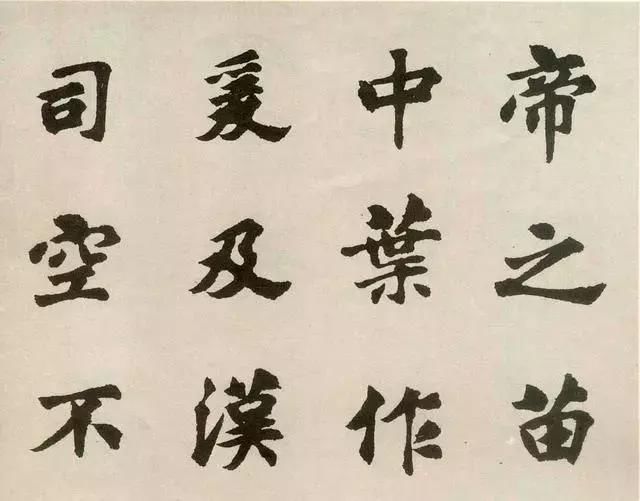 帝之苗
中葉作
爰及漢
司空不